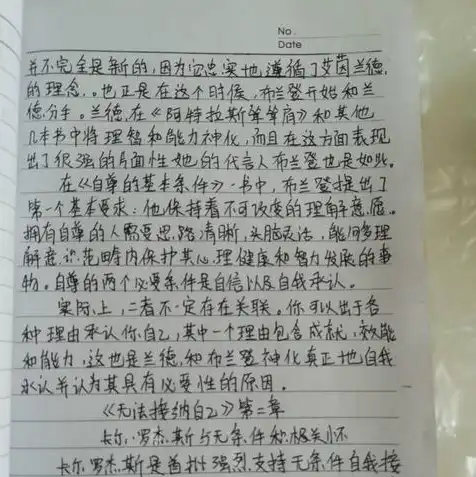 No.
Date
并不完全是新的,因为它忠实地遵循了艾茵兰德
的理念。也正是在这个时候,布兰登开始和兰
德分手。兰德在《阿特拉斯耸耸肩》和其他
几本书中将理智和能力神化,而且在这方面表现
出了很强的局面性她的代言人布兰登也是如此。
在《自尊的基本条件》一书中,布兰登提出了
第一个基本要求:他保持着不可改变的理解意愿。
拥有自尊的人需要思路清晰,头脑灵活,能够理
解意识范畴内保护其心理健康和智力发展的事
物。自尊的两个必要条件是自信以及自我承认。
实际上,二者不一定存在关联。你可以出于各
种理由承认你自己,其中一个理由包含成就、效能
和能力,这也是兰德和布兰登神化真正地自我
承认并认为其具有必要性的原因。
《无法接纳自己》第二章
卡尔·罗杰斯与无条件积极关怀
卡尔·罗杰斯是首批强烈支持无条件自我接